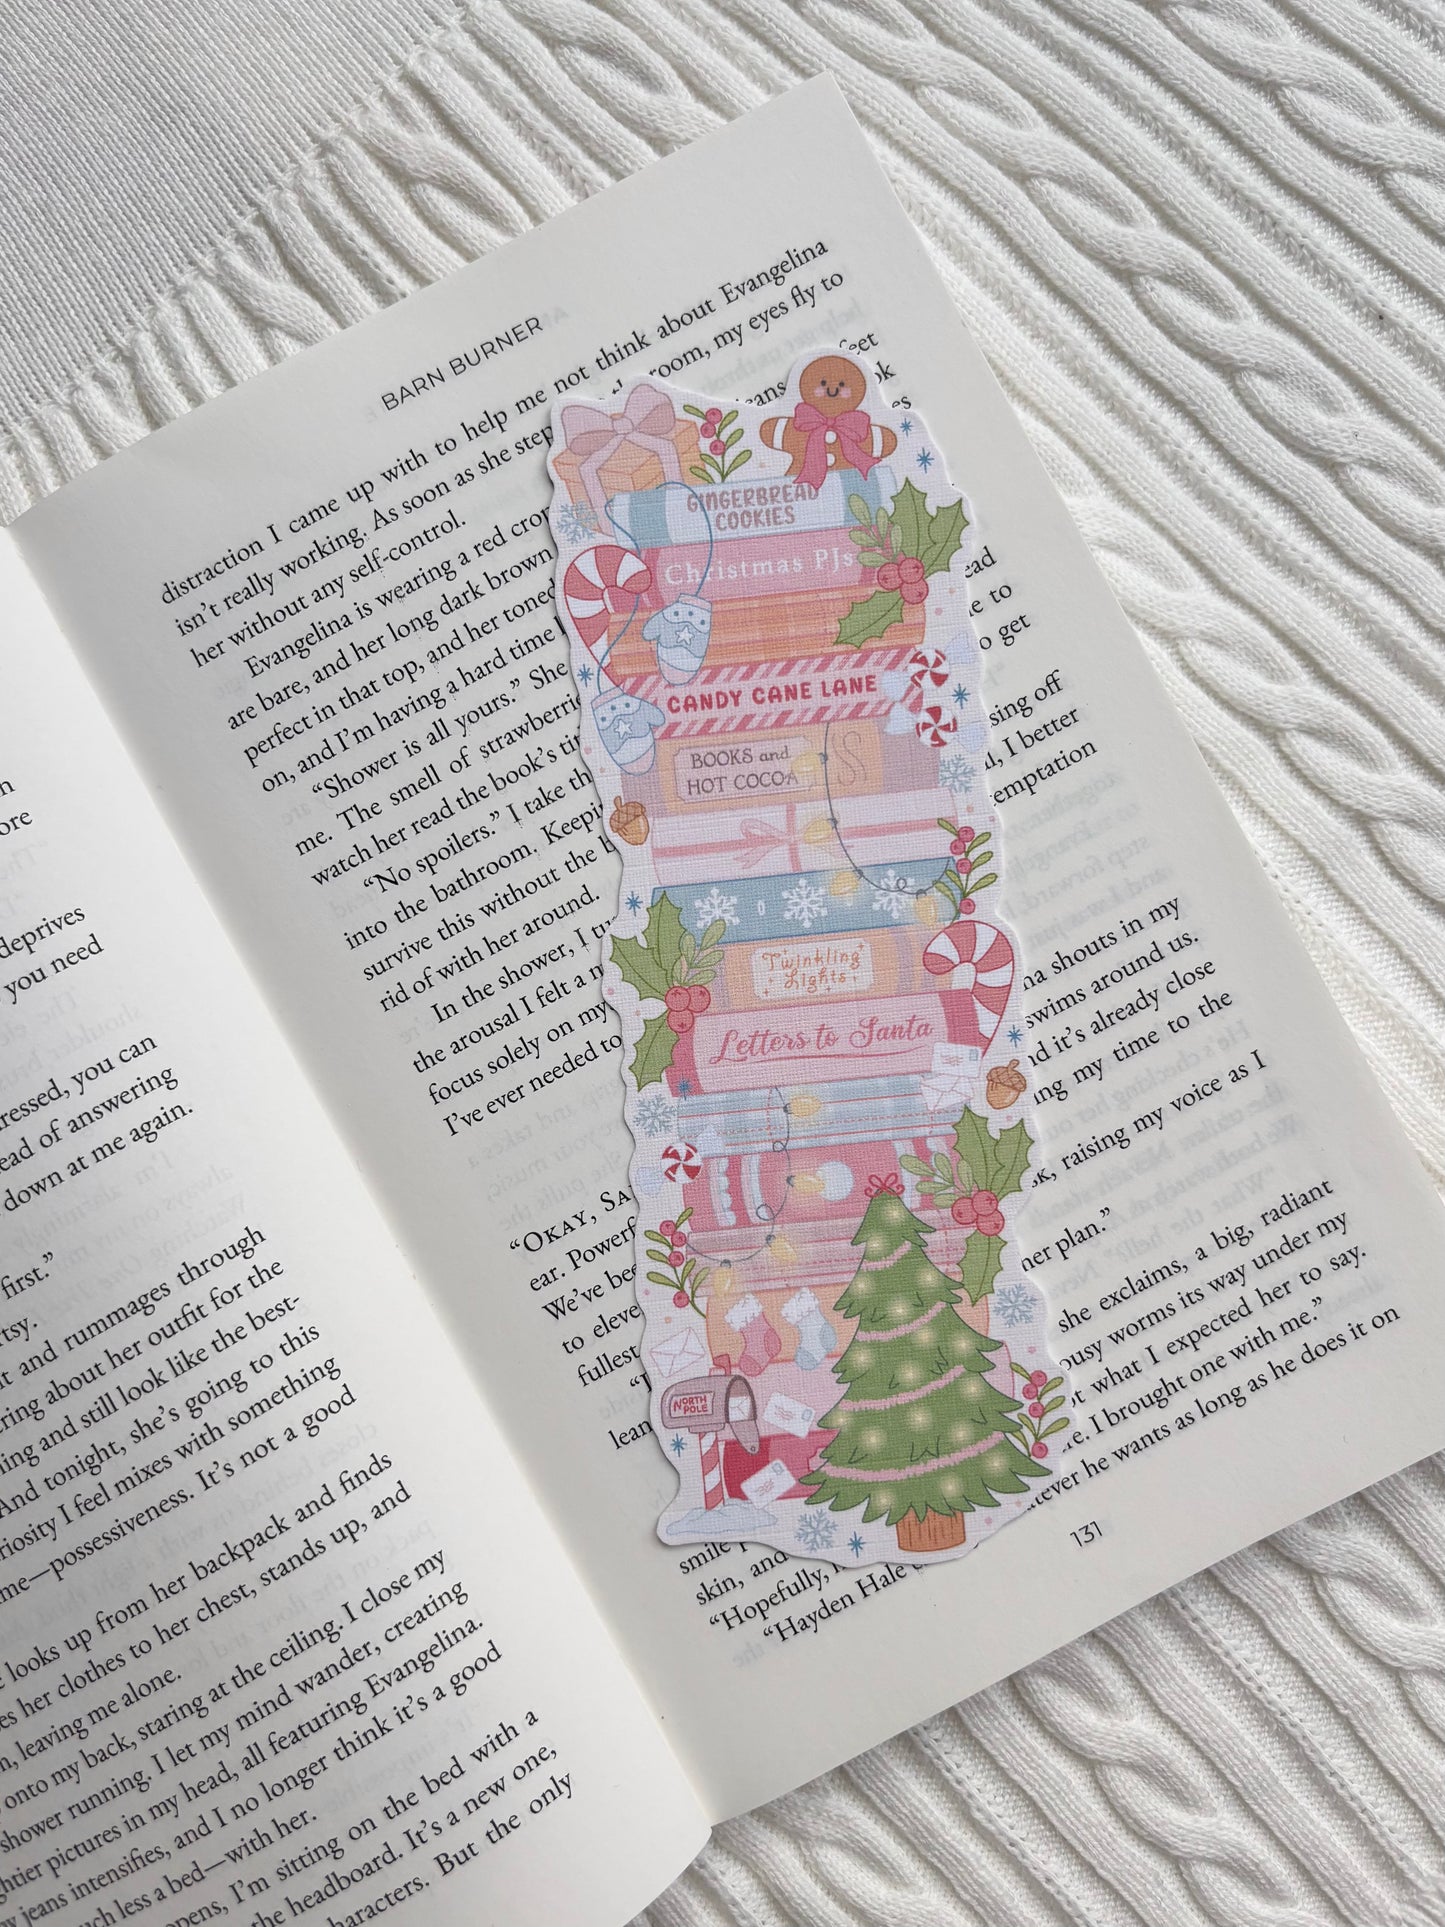 ore
deprives
you need
ressed, you can
ead of answering
down at me again.
first."
it and rummages through
ering about her outfit for the
ning and still look like the best-
And tonight, she's going to this
riosity I feel mixes with something
me—possessiveness. It's not a good
looks up from her backpack and finds
es her clothes to her chest, stands up, and
n, leaving me alone.
onto my back, staring at the ceiling. I close my
shower running. I let my mind wander, creating
ghtier pictures in my head, all featuring Evangelina.
jeans intensifies, and I no longer think it's a good
uch less a bed—with her.
opens, I'm sitting on the bed with a
the headboard. It's a new one,
haracters. But the only
BARN BURNER
distraction I came up with to help me not think about Evangelina
isn't really working. As soon as she step room, my eyes fly to
her without any self-control.
Evangelina is wearing a red crop
are bare, and her long dark brown
perfect in that top, and her toned
on, and I'm having a hard time
"Shower is all yours." She
me. The smell of strawberrie
watch her read the book's
"No spoilers." I take
into the bathroom. Keepin
survive this without the
rid of with her around.
In the shower, I
the arousal I felt a
focus solely on my
I've ever needed to
na shouts in my
swims around us.
nd it's already close
ing my time to the
"OKAY, SA sk, raising my voice as I
ear. Powerf
We've bee her plan."
to eleve she exclaims, a big, radiant
fullest ousy worms its way under my
ot what I expected her to say.
lean e. I brought one with me."
tever he wants as long as he does it on
smile
skin, and
"Hopefully,
"Hayden Hale
feet
ead
to
to get
using off
I better
temptation
131
GINGERBREAD
COOKIES
Christmas PJs
CANDY CANE LANE
BOOKS and
HOT COCOA
Twinkling
Lights
Letters to Santa
NORTH
POLE